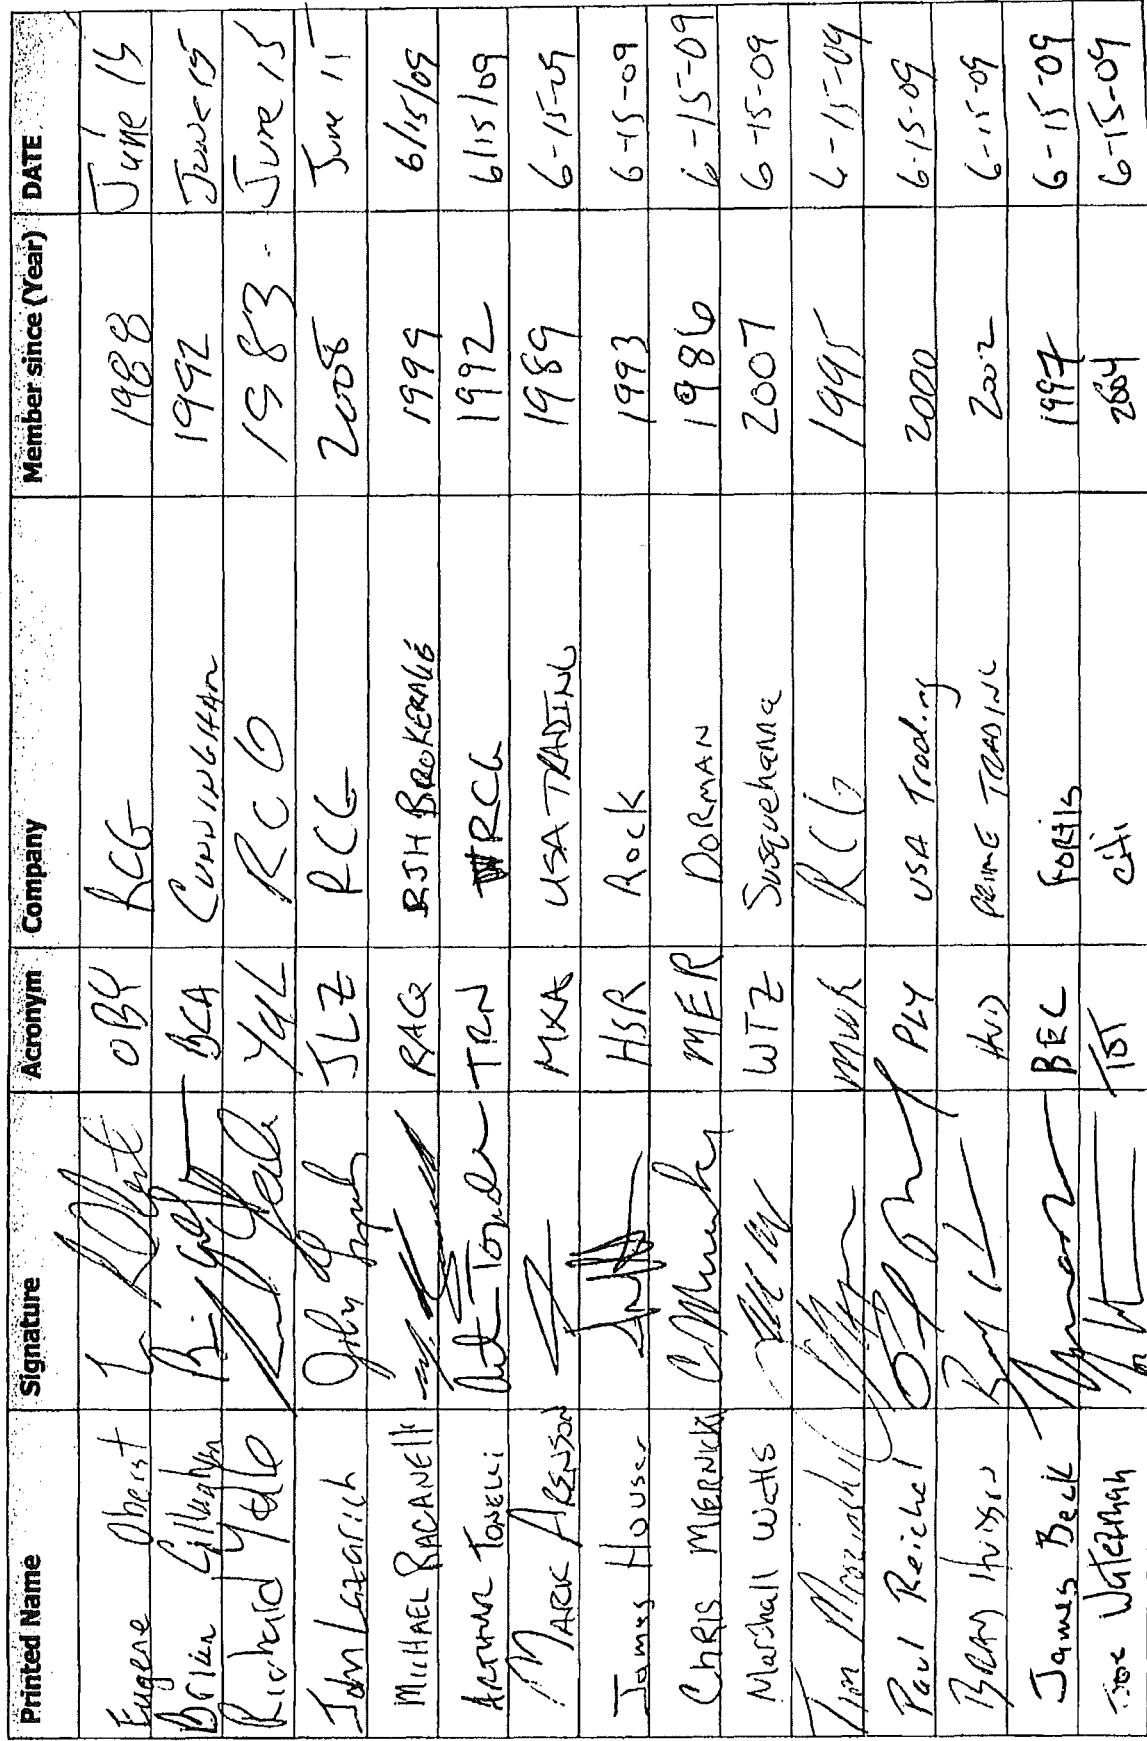 Printed Name Signature Acronym Company Member since (Year) DATE
Eugene Oberst OBY RCG 1988 June 15
Brian BCA CUNNINGHAM 1992 June 15
Richard Yale YUL RCG 1983 June 15
John Lazarich JLZ RCG 2008 June 15
MICHAEL RACANELLI RACQ RJH BROKERAGE 1999 6/15/09
ARTHUR TONELLI TRN RCG 1992 6/15/09
MARK ARENSON MKA USA TRADING 1989 6-15-09
James House HSR Rock 1993 6-15-09
CHRIS MIERNICKI MER DORMAN 1986 6-15-09
Marshall Watts WTZ Susquehanna 2007 6-15-09
Tim MWR RCG 1995 6-15-09
Paul Reichel PLY USA Trading 2000 6-15-09
HUD PRIME TRADING 2002 6-15-09
James Beck BEC FORTIS 1997 6-15-09
Waterman TOT citi 2004 6-15-09